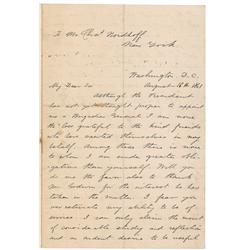 To Mr. Chas. Nordhoff
New York
Washington D.C.
August 16th 1861
My Dear Sir
Although the President
has not yet thought proper to appoint
me a Brigadier General I am none
the less grateful to the kind friends
who have exerted themselves in my
behalf. Among these there is none
to whom I am under greater oblig-
ation than yourself. Will you
do me the favor also to thank
Mr Godwin for the interest he has
taken in the matter. I fear you
overestimate my ability to be of
service. I can only claim the merit
of considerable study and reflection
and an ardent desire to be useful